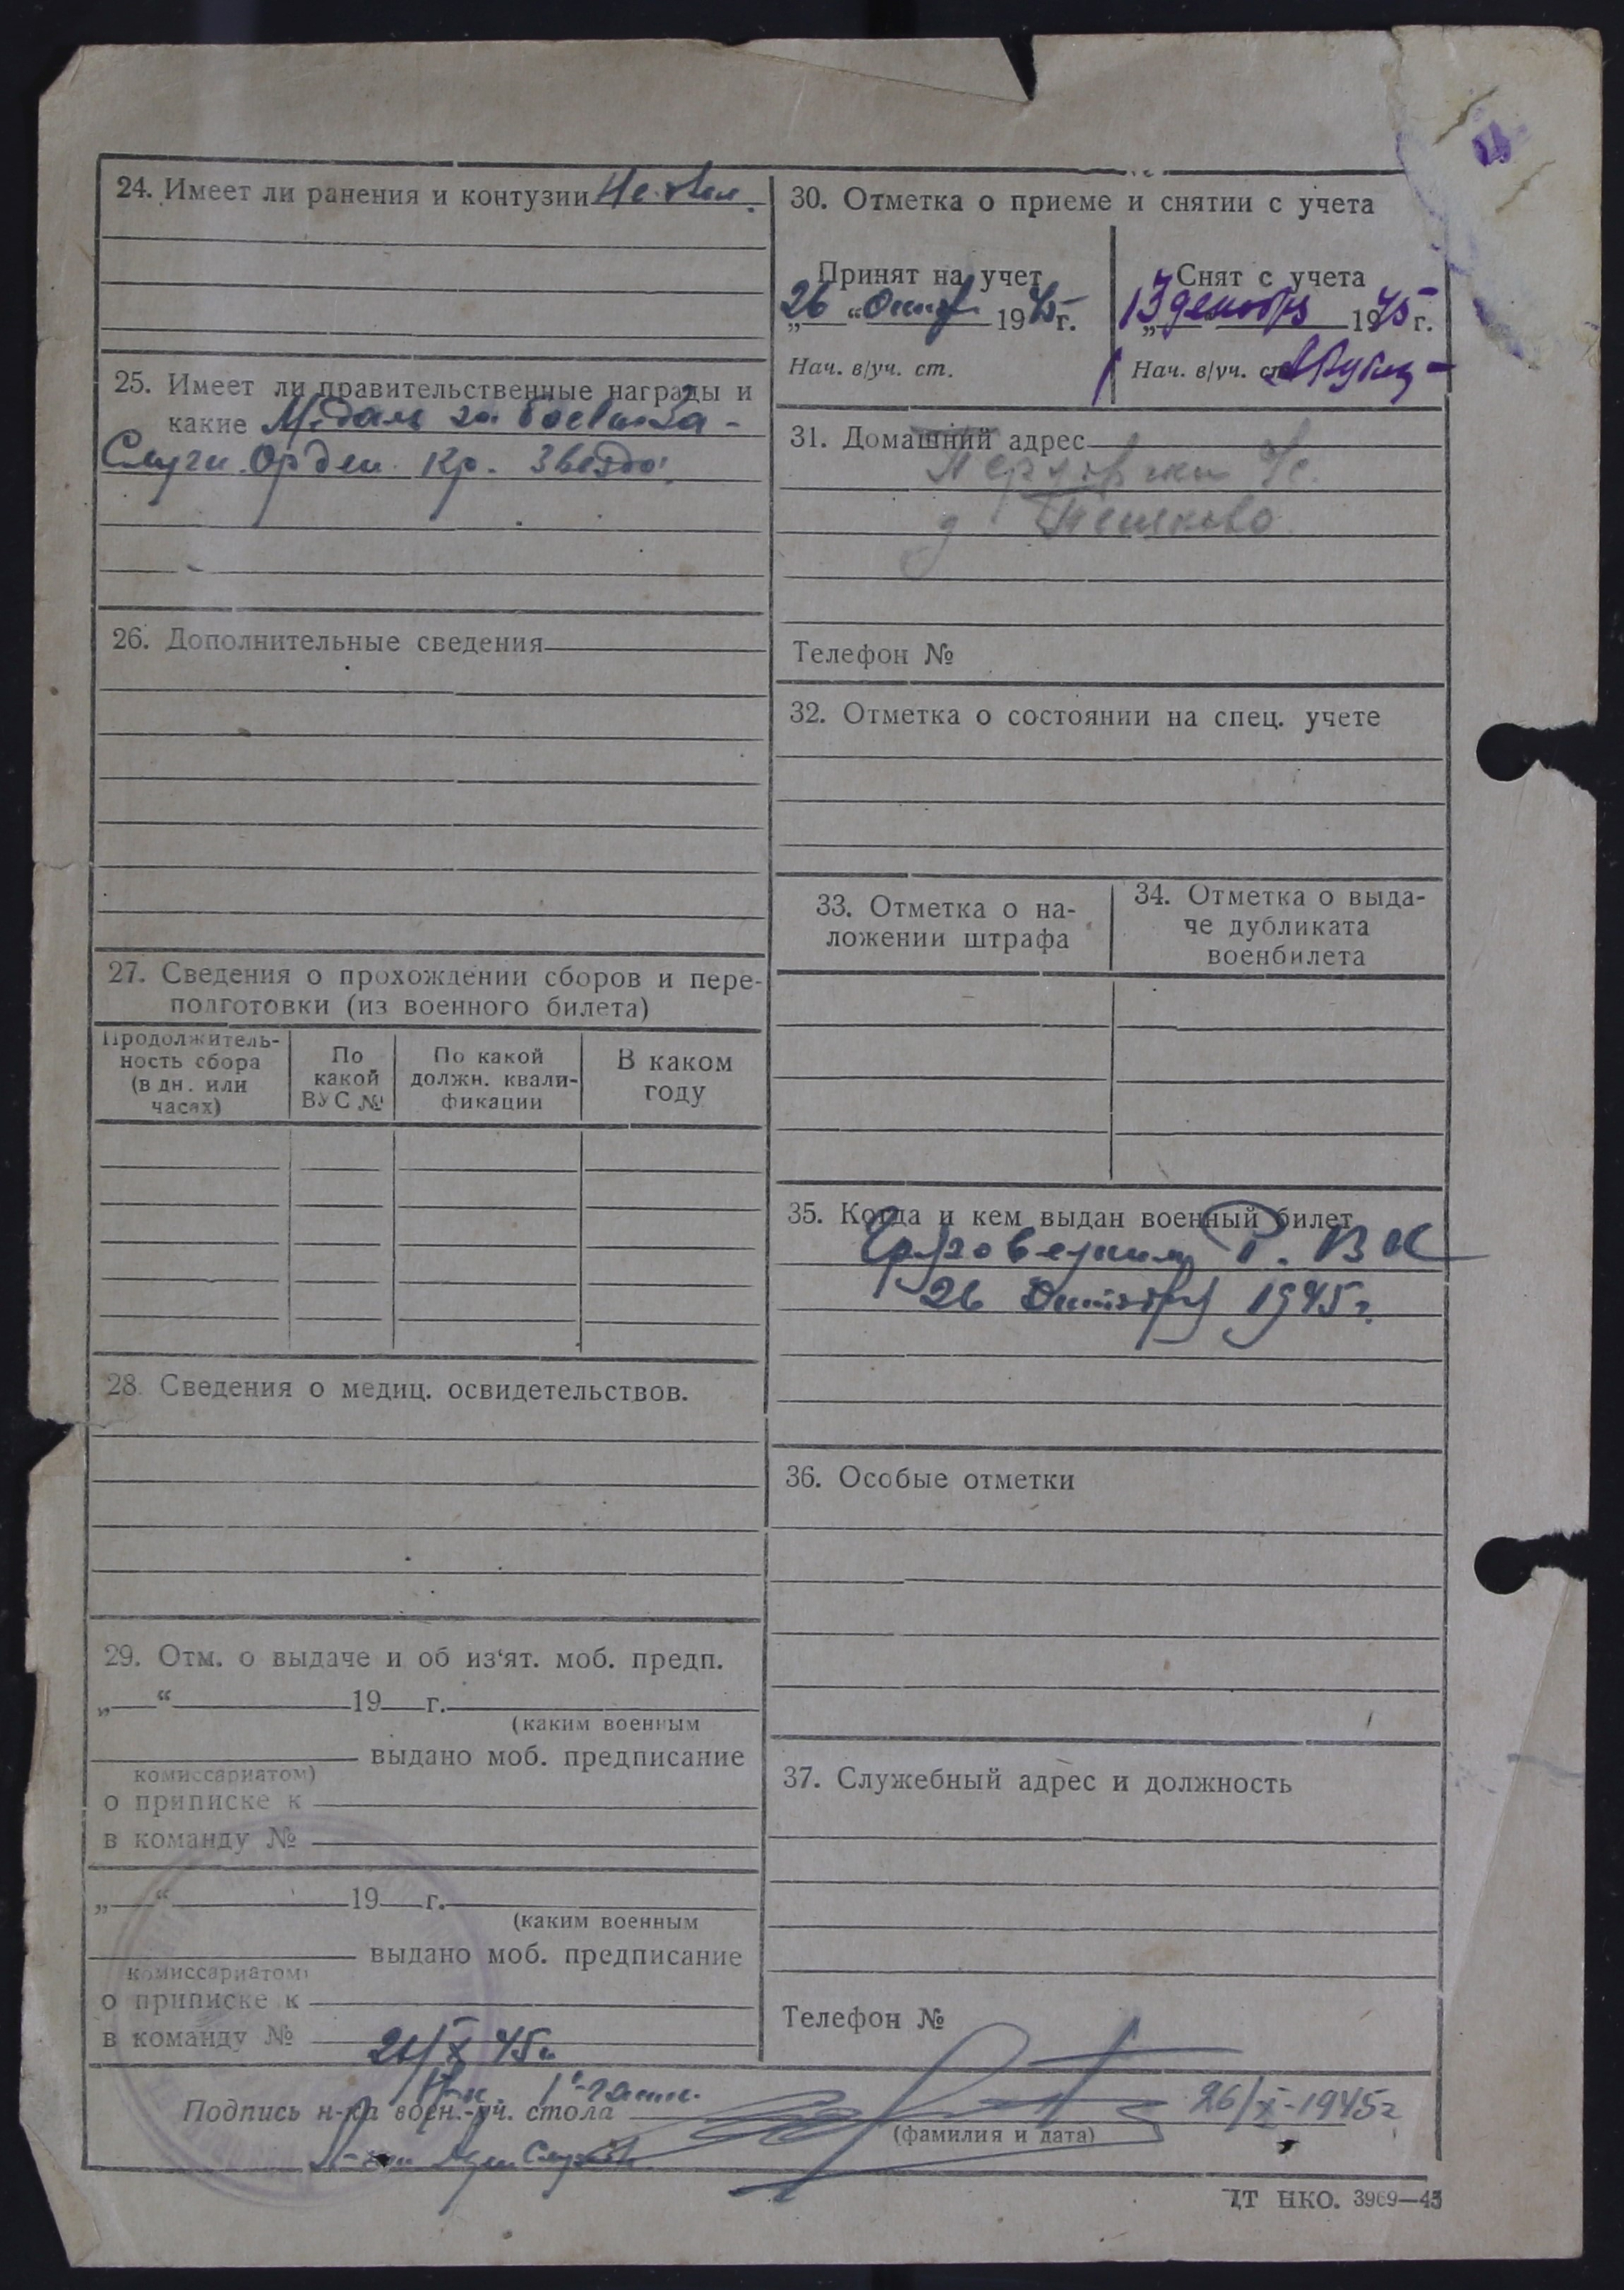 24. Имеет ли ранения и контузии Не
25. Имеет ли правительственные награды и
какие Медаль за боевые за-
слуги. Орден Кр. Звезда.
26. Дополнительные сведения
27. Сведения о прохождении сборов и пере-
подготовки (из военного билета)
Продолжитель-
ность сбора
(в дн. или
часах)
По
какой
ВУС №
По какой
должн. квали-
фикации
В каком
году
28. Сведения о медиц. освидетельствов.
29. Отм. о выдаче и об из‘ят. моб. предп.
„ “ 19 г.
(каким военным
выдано моб. предписание
комиссариатом)
о приписке к
в команду №
„ “ 19 г.
(каким военным
выдано моб. предписание
комиссариатом)
о приписке к
в команду №
30. Отметка о приеме и снятии с учета
Принят на учет
„26“ Октяб 1945 г.
Нач. в/уч. ст.
Снят с учета
„13 декабря 1945 г.
Нач. в/уч. ст.
31. Домашний адрес
д.
Телефон №
32. Отметка о состоянии на спец. учете
33. Отметка о на-
ложении штрафа
34. Отметка о выда-
че дубликата
военбилета
35. Когда и кем выдан военный билет
Р. ВК
26 Октября 1945 г.
36. Особые отметки
37. Служебный адрес и должность
Телефон №
26/X 45 г.
Подпись н-ка воен.-уч. стола
26/X-1945 г
(фамилия и дата)
ЦТ НКО. 3969—43